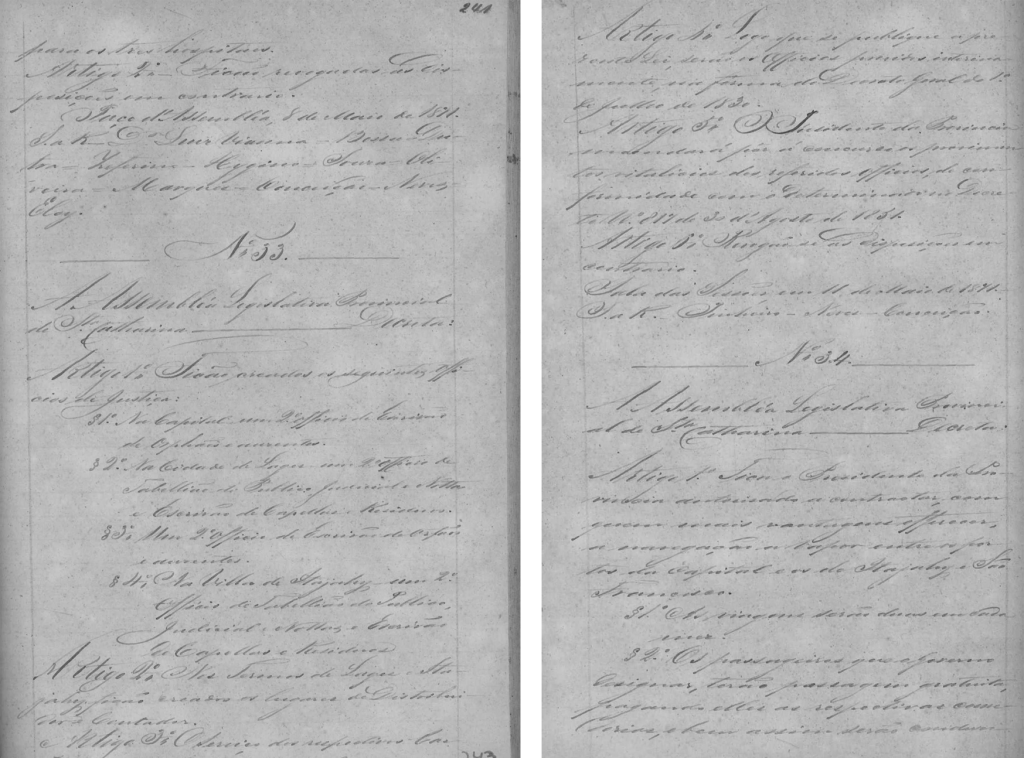 241
para os tres hospitaes.
Artigo 2º Ficão revogadas as dis-
posições em contrario.
Paço d'Assembléa, 8 de Maio de 1871.
S. a R. Luz Vianna
Zeferino Hygino Souza Oli-
veira Conceição Neves
Eloy.
Nº 33.
A Assembléa Legislativa Provincial
de Stª Catharina Decreta:
Artigo 1º Ficão creados os seguintes offi-
cios de Justiça:
§ 1º Na Capital um 2º officio de Escrivão
de Orphãos e ausentes.
§ 2º Na Cidade de Lages um 2º officio de
Tabellião do Publico, Judicial e Nottas
e Escrivão de Capellas e Residuos.
§ 3º Um 2º officio de Escrivão de Orfãos
e ausentes.
§ 4º Na Villa de Itajahy um 2º
Officio de Tabellião do Publico,
Judicial e Nottas, e Escrivão
de Capellas e Residuos
Artigo 2º Nos Termos de Lages e Ita-
jahy ficão creados os lugares de Distribui-
dor e Contador.
Artigo 3º O serviço dos respectivos Car-
243
Artigo 4º Logo que se publique a pre-
zente Lei, serão os Officios providos interina-
mente, na forma do Decreto Geral de 1º
de Julho de 1830.
Artigo 5º O Presidente da Provincia
mandará pôr á concurso os provimen-
tos vitalicios dos referidos officios, de con-
formidade com o determinado no Decre-
to Nº 817 de 30 d'Agosto de 1851.
Artigo 6º Revogão-se as disposições em
contrario.
Sala das Sessões em 11 de Maio de 1871.
S. a R. Pinheiro Neves Conceição.
Nº 34.
A Assembléa Legislativa Provinci-
al de Stª Catharina Decreta:
Artigo 1º Fica o Presidente da Pro-
vincia autorisado a contractar, com
quem mais vantagens offerecer,
a navegação a vapor entre o por-
to da Capital e os de Itajahy e São
Francisco.
§ 1º As viagens serão duas em cada
mez.
§ 2º Os passageiros que o Governo
designar, terão passagem gratuita,
pagando elles as respectivas come-
dorias, e bem assim serão conduzi-